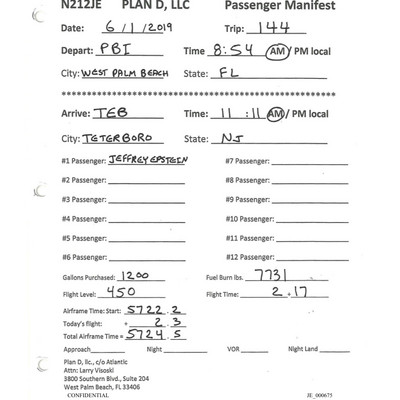 N212JE PLAN D, LLC Passenger Manifest
Date: 6/1/2019 Trip: 144
Depart: PBI Time 8:54 AM / PM local
City: WEST PALM BEACH State: FL
Arrive: TEB Time: 11:11 AM / PM local
City: TETERBORO State: NJ
#1 Passenger: JEFFREY EPSTEIN #7 Passenger:
#2 Passenger: #8 Passenger:
#3 Passenger: #9 Passenger:
#4 Passenger: #10 Passenger:
#5 Passenger: #11 Passenger:
#6 Passenger: #12 Passenger:
Gallons Purchased: 1200 Fuel Burn lbs. 7731
Flight Level: 450 Flight Time: 2.17
Airframe Time: Start: 5722.2
Today's flight: + 2.3
Total Airframe Time = 5724.5
Approach Night VOR Night Land
Plan D, llc, c/o Atlantic
Attn: Larry Visoski
3800 Southern Blvd., Suite 204
West Palm Beach, FL 33406
CONFIDENTIAL JE_000675